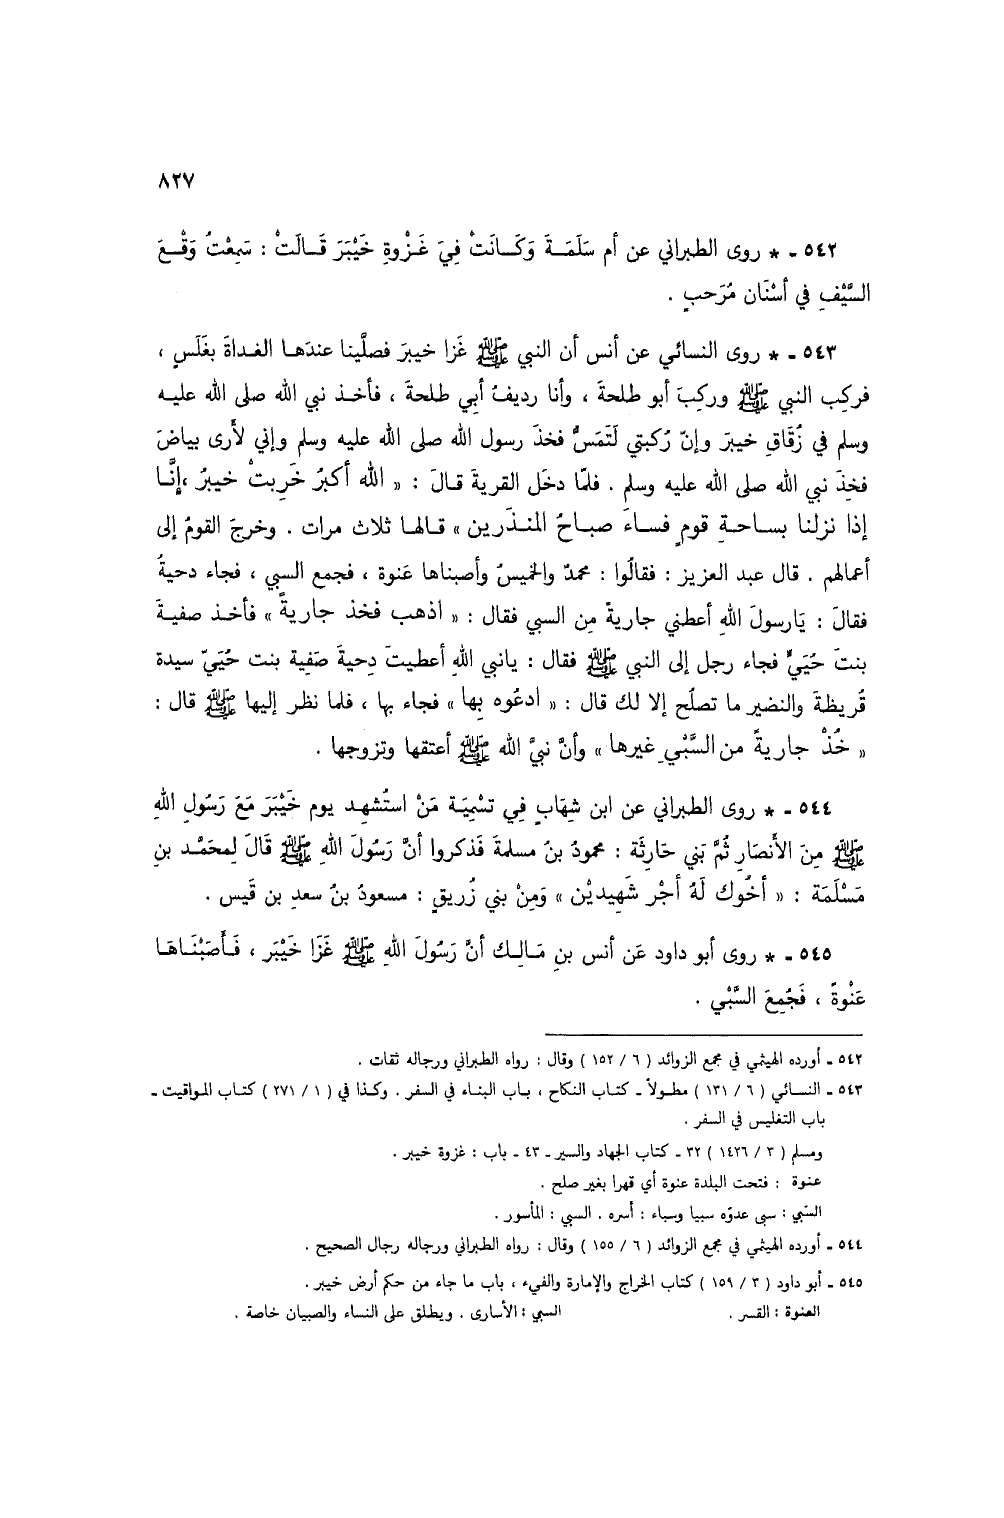 ٨٢٧
٥٤٢ ـ * روى الطبراني عن أم سَلَمَـةَ وَكَـانَتْ فِيَ غَـزْوةِ خَيْبَرَ قَـالَتْ : سَمِعْتُ وَقْـعَ
السَّيْفِ في أسْنَان مُرَحبٍ .
٥٤٣ ـ * روى النسائي عن أنس أن النبي ﷺ غَزا خيبرَ فصلَّينا عندَهـا الغـداةَ بغَلَسٍ ،
فركِب النبي ﷺ وركِبَ أبو طلحةَ ، وأنا رديفُ أبي طلحةَ ، فأخـذ نبي الله صلى الله عليـه
وسلم في زُقَاقِ خيبرَ وإنّ رُكبتي لَتَمَسُّ فخذَ رسول الله صلى الله عليه وسلم وإني لأرى بياضَ
فخذَ نبي الله صلى الله عليه وسلم . فلمّا دخَل القريةَ قـالَ : « الله أكبرُ خَرِبتْ خيبرُ ،إنَّـا
إذا نزلنا بسـاحـةِ قومٍ فسـاءَ صباحُ المنـذَرين » قـالهـا ثلاث مرات . وخرجَ القومُ إلى
أعمالهم . قال عبد العزيز : فقالُوا : محمدٌ والخميسُ وأصبناها عَنوة ، فجمع السبي ، فجاء دحيةُ
فقالَ : يَارسولَ اللهِ أعطني جاريةً مِن السبي فقال : « اذهب فخذ جاريةً » فأخـذ صفيـةَ
بنتَ حُيَيٍّ فجاء رجل إلى النبي ﷺ فقال : يانبي اللهِ أعطيتَ دِحيةَ صَفِية بنت حُيَيّ سيدة
قُريظةَ والنضير ما تصلُح إلا لك قال : « ادعُوه بِها » فجاء بها ، فلما نظر إليها ﷺ قال :
« خُذْ جاريةً من السَّبْيِ غيرها » وأنَّ نبيَّ الله ﷺ أعتقها وتزوجها .
٥٤٤ ـ * روى الطبراني عن ابن شِهَابٍ فِي تسْمِيَـة مَنْ استُشهـد يوم خَيْبَرَ مَعَ رَسُولِ اللهِ
ﷺ مِنَ الأنصَارِ ثُمَّ بَني حَارِثَة : محمودُ بنُ مسلمةَ فَذكروا أنَّ رَسُولَ الله ﷺ قَالَ لِمحمَّـد بنِ
مَسْلَمَة : « أخُوك لَهُ أجْر شَهِيديْن » وَمِنْ بني زُريقٍ : مسعودُ بنُ سعدِ بن قَيس .
٥٤٥ ـ * روى أبو داود عَن أنس بنِ مَـالِـك أنَّ رَسُولَ اللهِ ﷺ غَزَا خَيْبَر ، فَـأَصَبْنَـاهَـا
عَنْوةً ، فَجُمِعَ السَّبْي .
٥٤٢ ـ أورده الهيثمي في مجمع الزوائد ( ٦ / ١٥٢ ) وقال : رواه الطبراني ورجاله ثقات .
٥٤٣ ـ النسـائي ( ٦ / ١٣١ ) مطـولاً ـ كتـاب النكاح ، بـاب البنـاء في السفر . وكـذا في ( ١ / ٢٧١ ) كتـاب المـواقيت ـ
باب التغليس في السفر .
ومسلم ( ٣ / ١٤٢٦ ) ٣٢ ـ كتاب الجهاد والسير ـ ٤٣ ـ باب : غزوة خيبر .
عنوة : فتحت البلدة عنوة أي قهرا بغير صلح .
السّبي : سبى عدوّه سبيا وسباء : أسره . السبي : المأسور .
٥٤٤ ـ أورده الهيثمي في مجمع الزوائد ( ٦ / ١٥٥ ) وقال : رواه الطبراني ورجاله رجال الصحيح .
٥٤٥ ـ أبو داود ( ٣ / ١٥٩ ) كتاب الخراج والإمارة والفيء ، باب ما جاء من حكم أرض خيبر .
العنوة : القسر . السبي : الأسارى . ويطلق على النساء والصبيان خاصة .